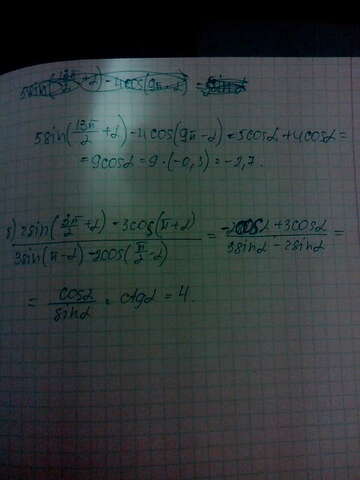 5sin(13π/2 + α) - 4cos(9π - α) = 5cosα + 4cosα =
= 9cosα = 9 · (-0,3) = -2,7.
(2sin(3π/2 + α) - 3cos(π + α)) / (3sin(π - α) - 2cos(π/2 - α)) = (-2cosα + 3cosα) / (3sinα - 2sinα) =
= cosα / sinα = ctgα = 4.